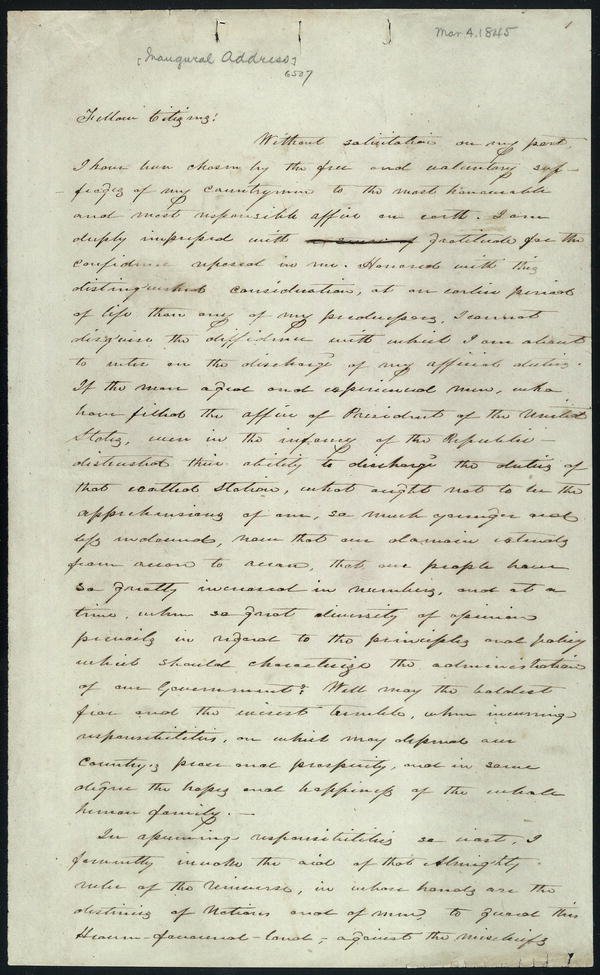 Mar 4. 1845
1
[Inaugural Address]
6507
Fellow Citizens:
Without solicitation on my part,
I have been chosen by the free and voluntary suf-
frages of my countrymen to the most honourable
and most responsible office on earth. I am
deeply impressed with a sense of gratitude for the
confidence reposed in me. Honored with this
distinguished consideration, at an earlier period
of life than any of my predecessors, I cannot
disguise the diffidence with which I am about
to enter on the discharge of my official duties.
If the more aged and experienced men, who
have filled the office of President of the United
States, even in the infancy of the Republic
distrusted their ability to discharge the duties of
that exalted station, what ought not to be the
apprehensions of one, so much younger and
less endowed, now that our domain extends
from ocean to ocean, that our people have
so greatly increased in numbers, and at a
time, when so great diversity of opinion
prevails in regard to the principles and policy
which should characterize the administration
of our Government? Well may the boldest
fear and the wisest tremble, when incurring
responsibilities, on which may depend our
country's peace and prosperity, and in some
degree the hopes and happiness of the whole
human family.—
In assuming responsibilities so vast, I
fervently invoke the aid of that Almighty
ruler of the Universe, in whose hands are the
destinies of Nations and of men, to guard this
Heaven-favoured-land, against the mischiefs